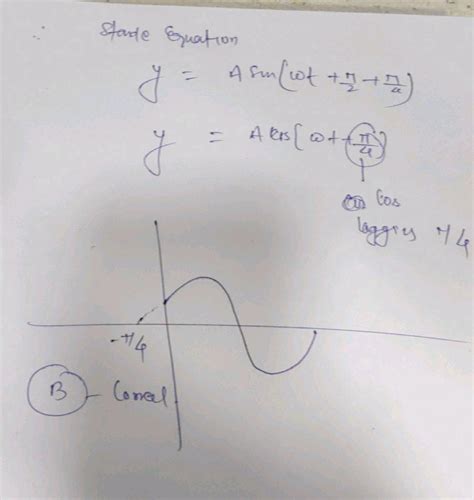 ∴ State Equation
y = A sin(ωt + π/2 + π/4)
y = A cos(ωt + π/4)
Cos
lagging π/4
-π/4
B - Correct